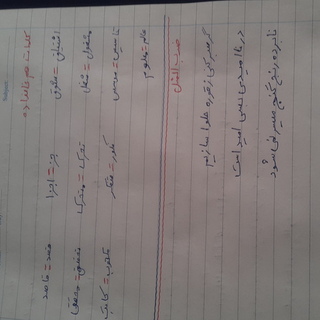 کلمات هم خانواده
اشتیاق = مشوق جز = اجزا قصد = قاصد
مشغول = شغل تحرک = متحرک تحقیق = محقق
تاسیس = موسس مکتوب = کاتب
عالم = معلوم
ضرب المثل
گر صبر کنی ز غوره حلوا سازیم
در ناامیدی بسی امید است
نابرده رنج گنج میسر نمی شود